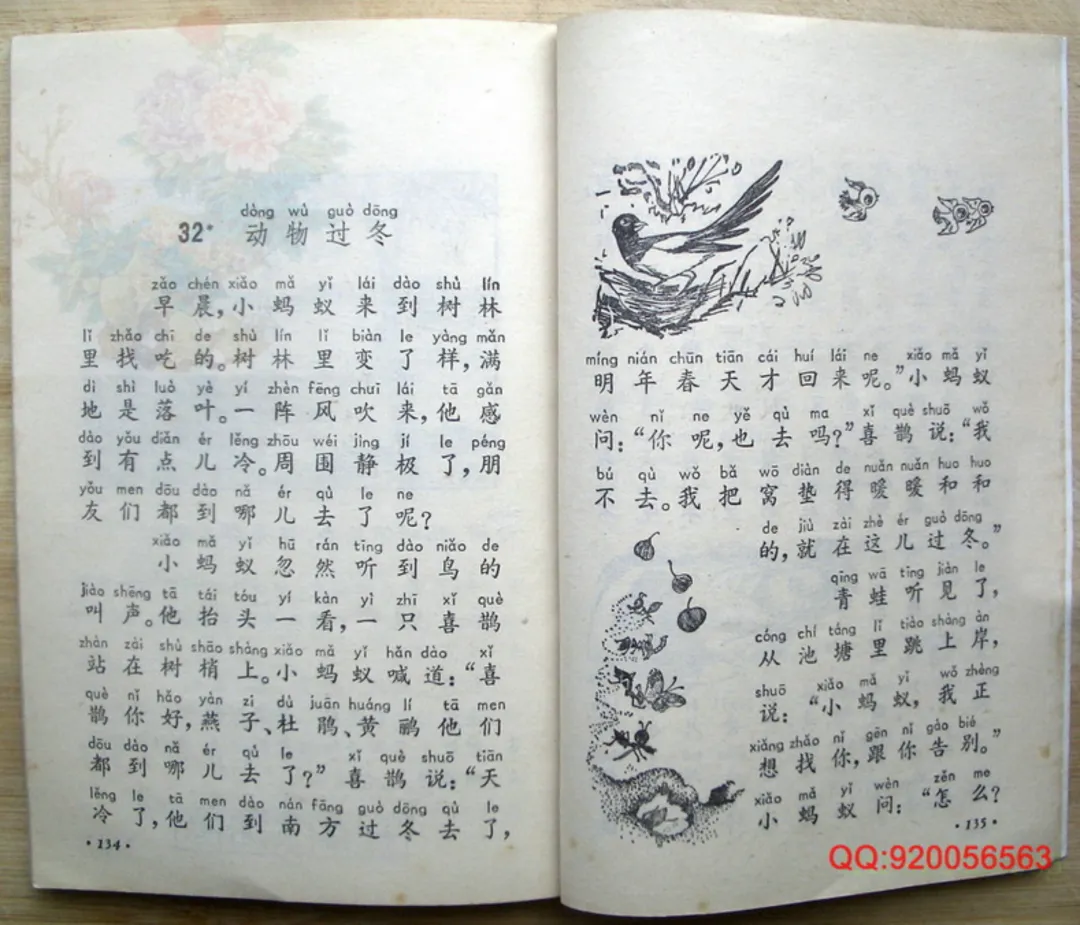 dòng wù guò dōng
32* 动物过冬
zǎo chén xiǎo mǎ yǐ lái dào shù lín
早晨,小蚂蚁来到树林
lǐ zhǎo chī de shù lín lǐ biàn le yàng mǎn
里找吃的。树林里变了样,满
dì shì luò yè yí zhèn fēng chuī lái tā gǎn
地是落叶。一阵风吹来,他感
dào yǒu diǎn ér lěng zhōu wéi jìng jí le péng
到有点儿冷。周围静极了,朋
yǒu men dōu dào nǎ ér qù le ne
友们都到哪儿去了呢?
xiǎo mǎ yǐ hū rán tīng dào niǎo de
小蚂蚁忽然听到鸟的
jiào shēng tā tái tóu yí kàn yì zhī xǐ què
叫声。他抬头一看,一只喜鹊
zhàn zài shù shāo shàng xiǎo mǎ yǐ hǎn dào xǐ
站在树梢上。小蚂蚁喊道:“喜
què nǐ hǎo yàn zi dù juān huáng lí tā men
鹊你好,燕子、杜鹃、黄鹂他们
dōu dào nǎ ér qù le xǐ què shuō tiān
都到哪儿去了?”喜鹊说:“天
lěng le tā men dào nán fāng guò dōng qù le
冷了,他们到南方过冬去了,
·134·
míng nián chūn tiān cái huí lái ne xiǎo mǎ yǐ
明年春天才回来呢。”小蚂蚁
wèn nǐ ne yě qù ma xǐ què shuō wǒ
问:“你呢,也去吗?”喜鹊说:“我
bú qù wǒ bǎ wō diàn de nuǎn nuǎn huo huo
不去。我把窝垫得暖暖和和
de jiù zài zhè ér guò dōng
的,就在这儿过冬。”
qīng wā tīng jiàn le
青蛙听见了,
cóng chí táng lǐ tiào shàng àn
从池塘里跳上岸,
shuō xiǎo mǎ yǐ wǒ zhèng
说:“小蚂蚁,我正
xiǎng zhǎo nǐ gēn nǐ gào bié
想找你,跟你告别。”
xiǎo mǎ yǐ wèn zěn me
小蚂蚁问:“怎么?
·135·
QQ:920056563